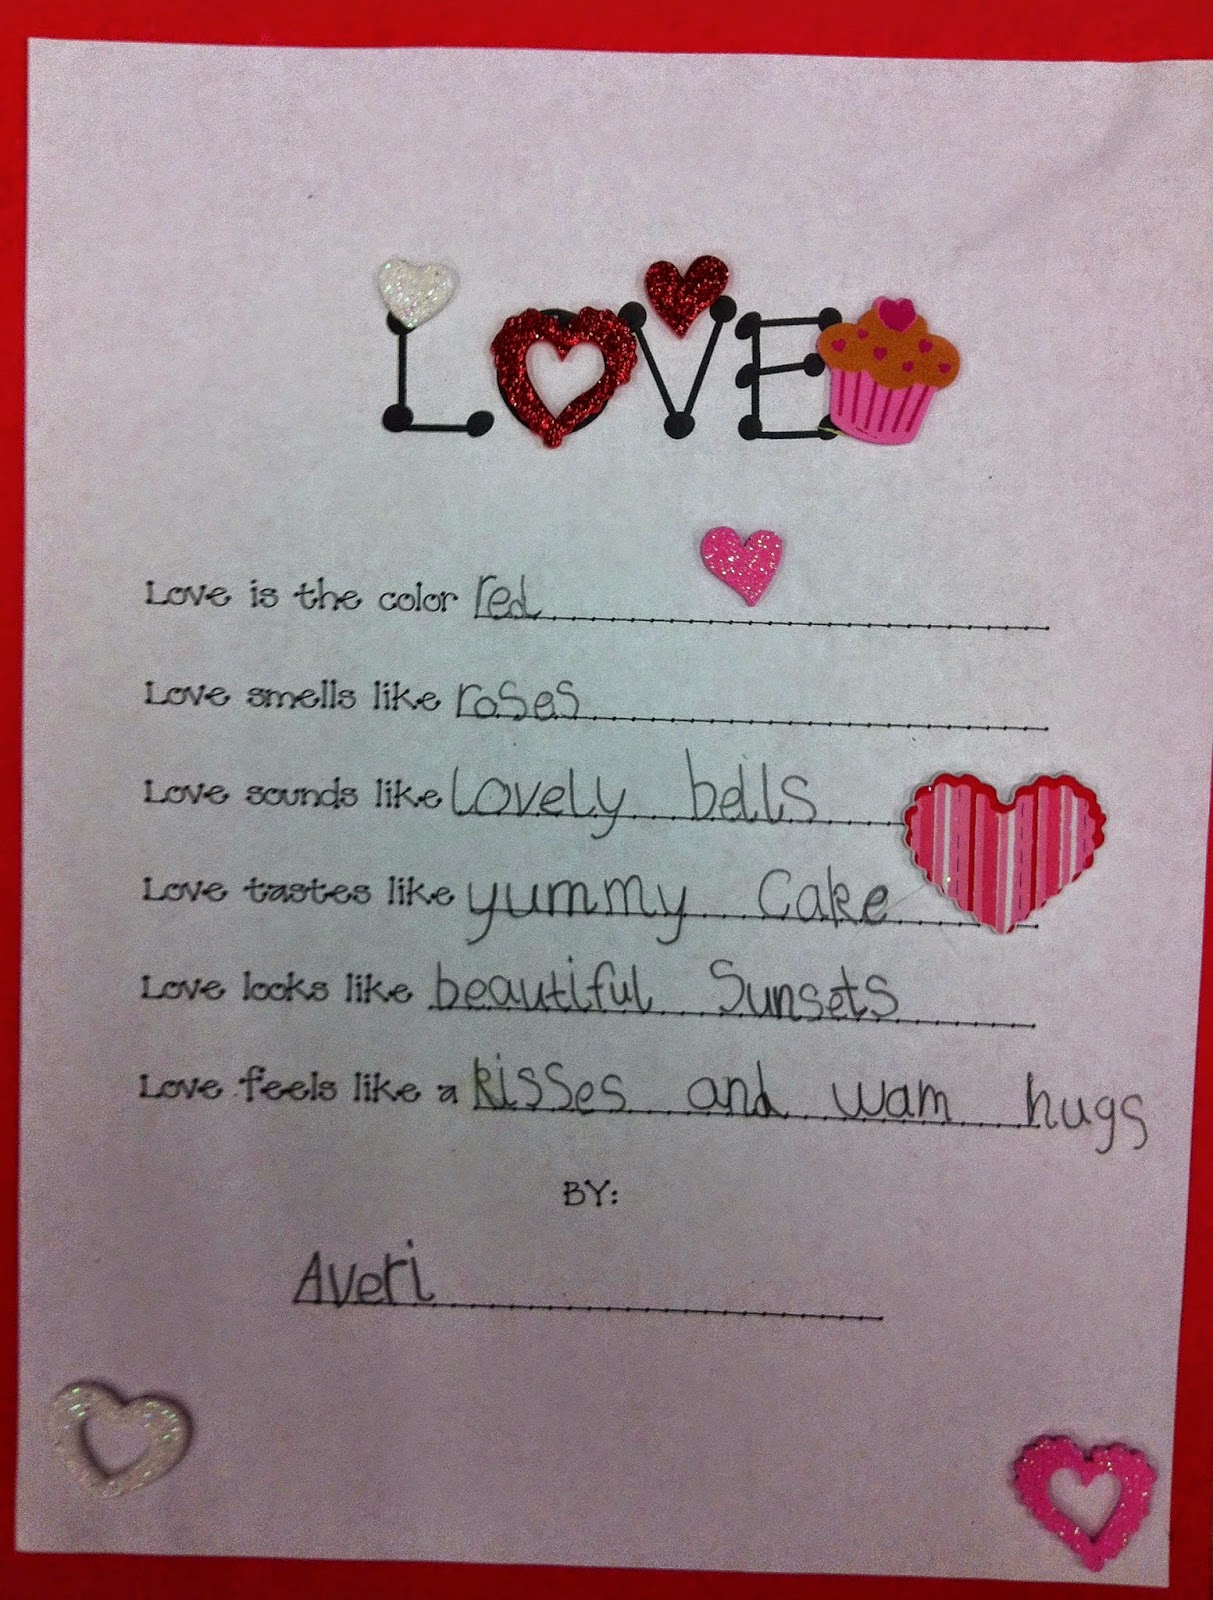 LOVE
Love is the color red
Love smells like roses
Love sounds like lovely bells
Love tastes like yummy Cake
Love looks like beautiful Sunsets
Love feels like a kisses and wam hugs
BY:
Averi